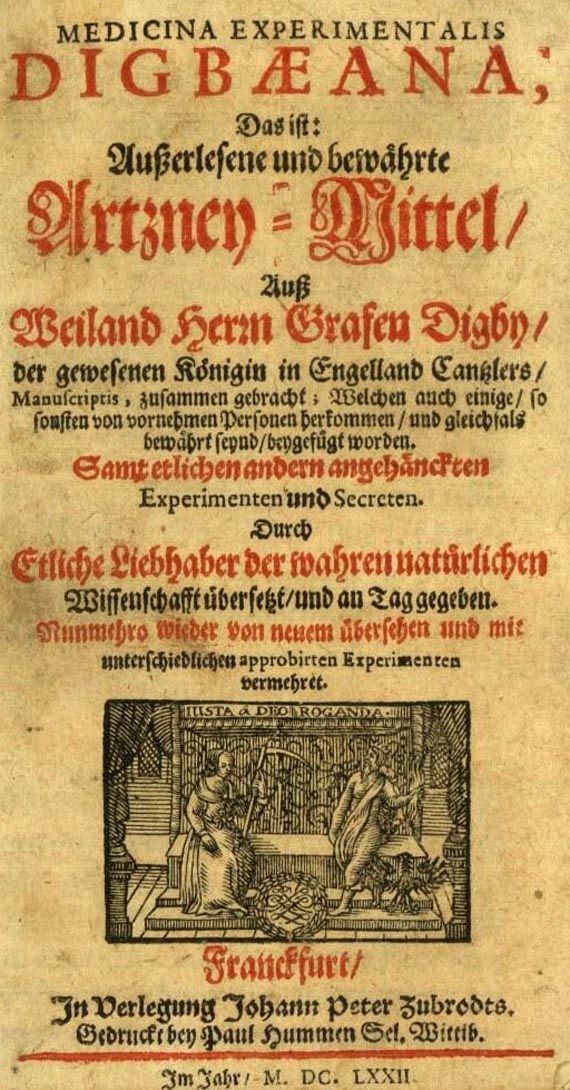 MEDICINA EXPERIMENTALIS
DIGBÆANA,
Das ist:
Außerlesene und bewährte
Artzney-Mittel/
Auß
Weiland Herrn Grafen Digby/
der gewesenen Königin in Engelland Cantzlers/
Manuscriptis, zusammen gebracht; Welchen auch einige/ so
sonsten von vornehmen Personen herkommen/ und gleichfals
bewährt seynd/ beygefügt worden.
Samt etlichen andern angehänckten
Experimenten und Secreten.
Durch
Etliche Liebhaber der wahren natürlichen
Wissenschafft übersetzt/ und an Tag gegeben.
Nunmehro wieder von neuem übersehen und mit
unterschiedlichen approbirten Experimenten
vermehret.
IUSTA á DEO ROGANDA.
Franckfurt/
In Verlegung Johann Peter Zubrodts.
Gedruckt bey Paul Hummen Sel. Wittib.
Im Jahr/ M. DC. LXXII